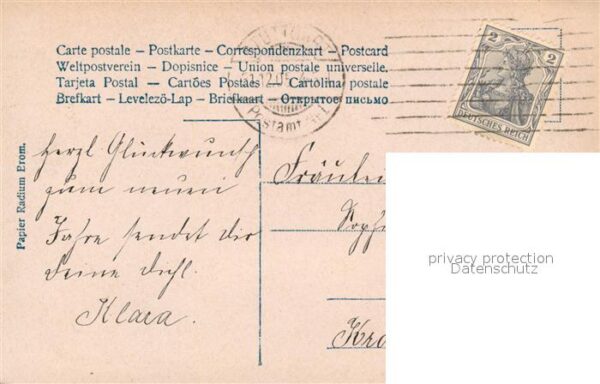 Carte postale – Postkarte – Correspondenzkart – Postcard
Weltpostverein – Dopisnice – Union postale universelle.
Tarjeta Postal – Cartões Postaes – Cartolina postale
Brefkart – Levelező-Lap – Briefkaart – Открытое письмо
2 2
DEUTSCHES REICH
Postamt
Papier Radium Erom.
herzl Glückwunsch
zum neuen
Jahre sendet dir
Deine dichl.
Klara.
Fräulein
Soph
Kro
privacy protection
Datenschutz